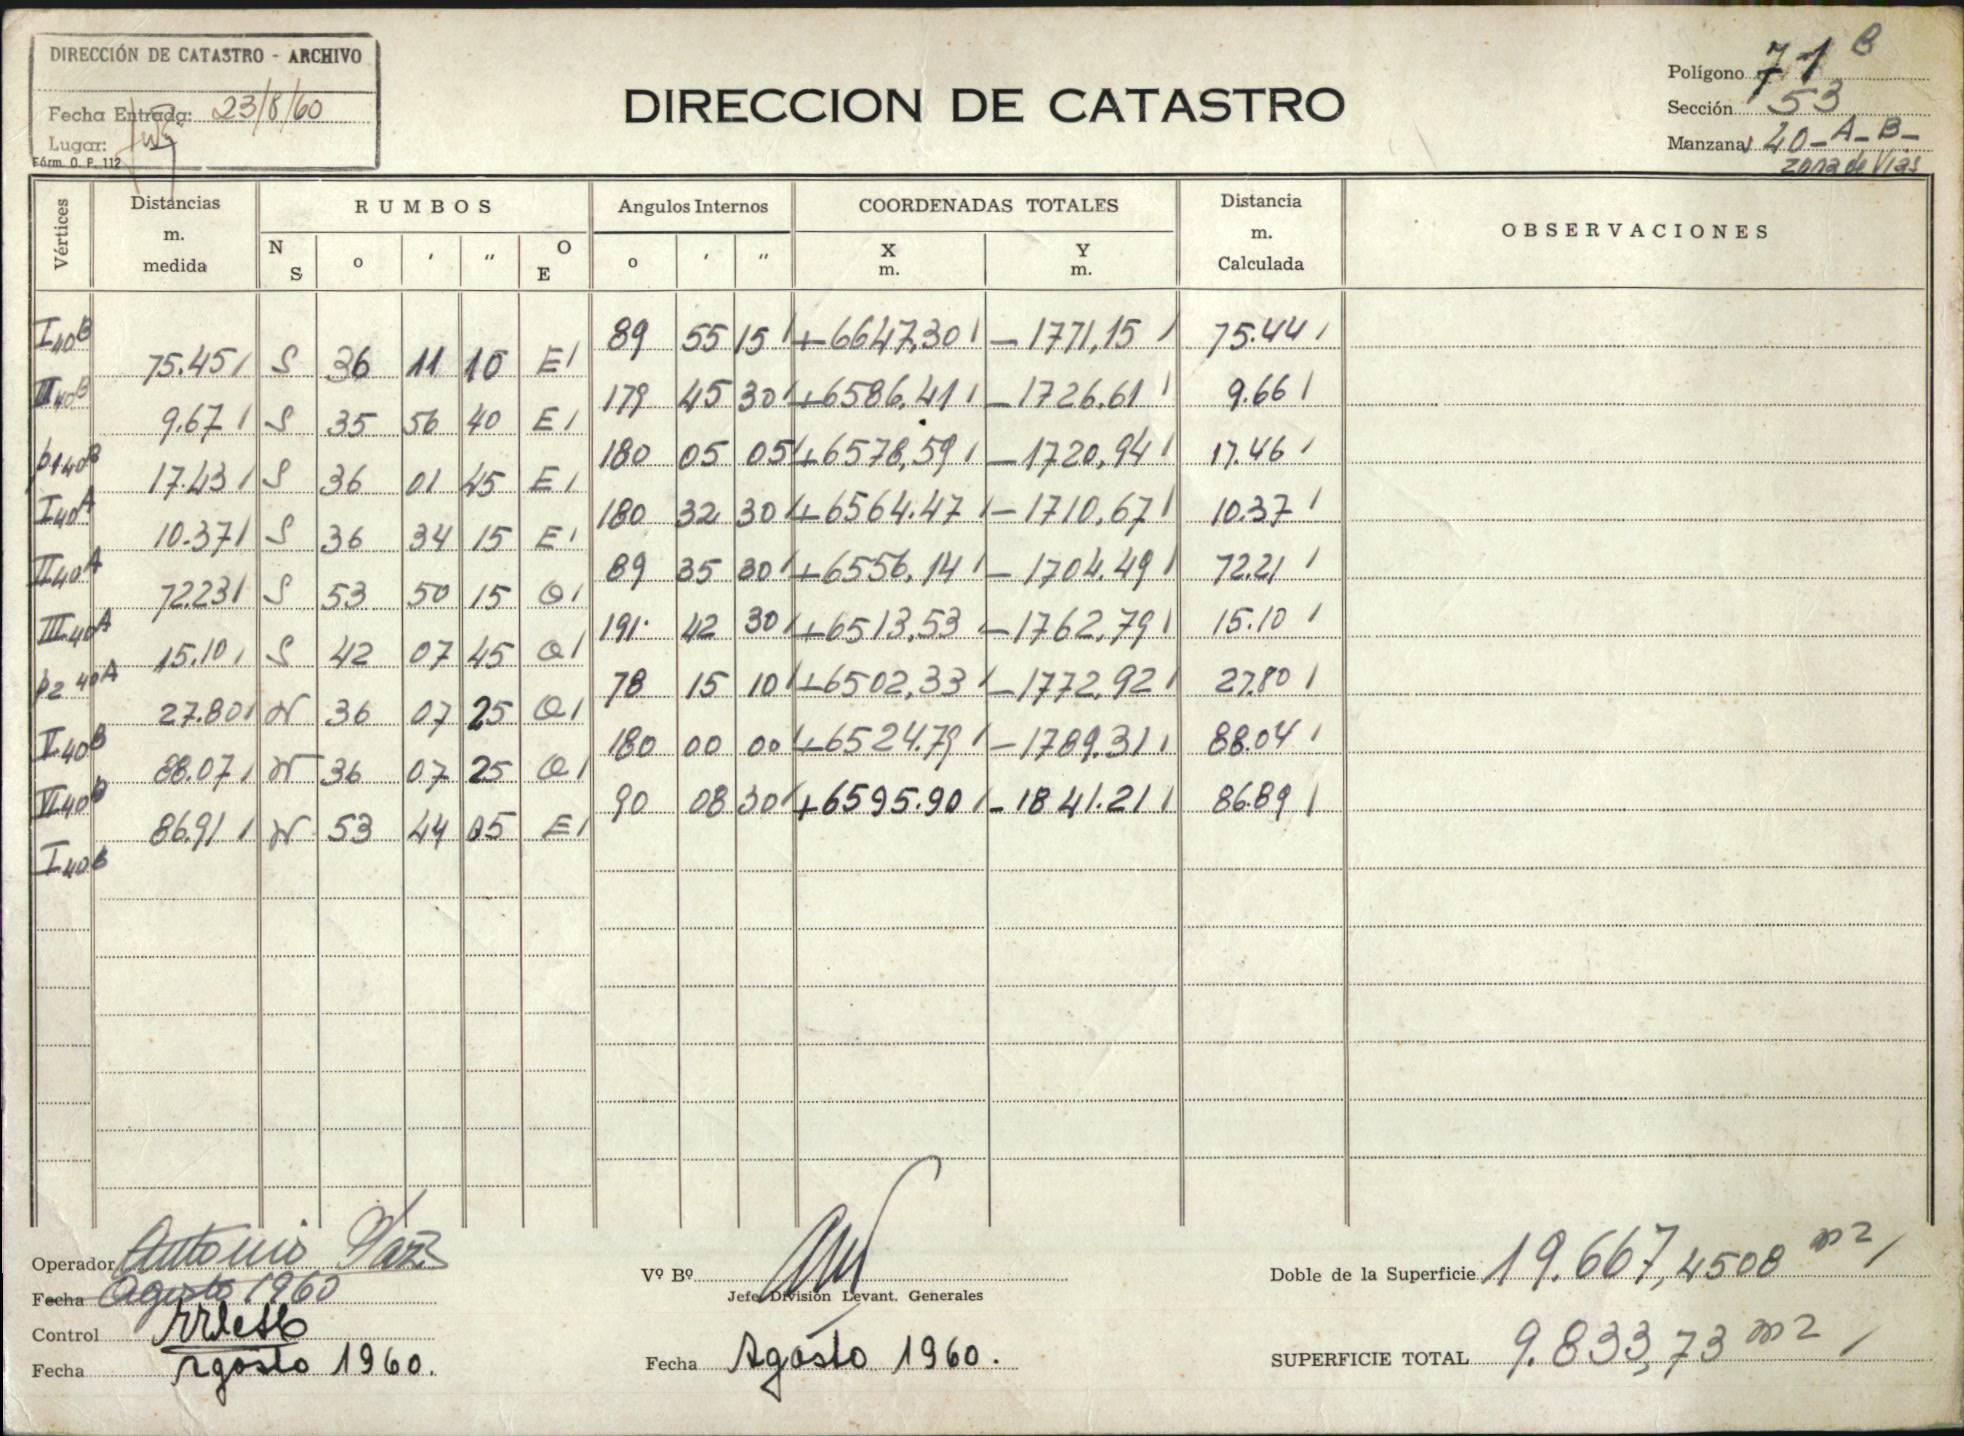 DIRECCIÓN DE CATASTRO - ARCHIVO
Fecha Entrada: 23/8/60
Lugar:
Fórm. O. P. 112
DIRECCION DE CATASTRO
Polígono 71 B
Sección 53
Manzana 40-A-B-
zona de Vías
Vértices Distancias m. medida RUMBOS Angulos Internos COORDENADAS TOTALES Distancia m. Calculada OBSERVACIONES
N S o ' " O E o ' " X m. Y m.
I40B 89 55 15 +6647,30 -1771,15 75.44
75.45 S 36 11 10 E
III40B 179 45 30 +6586.41 -1726.61 9.66
9.67 S 35 56 40 E
p1 40B 180 05 05 +6578,59 -1720,94 17.46
17.43 S 36 01 45 E
I40A 180 32 30 +6564.47 -1710,67 10.37
10.37 S 36 34 15 E
II40A 89 35 30 +6556.14 -1704.49 72.21
72.23 S 53 50 15 O
III40A 191 42 30 +6513,53 -1762,79 15.10
15.10 S 42 07 45 O
p2 40A 78 15 10 +6502,33 -1772,92 27.80
27.80 N 36 07 25 O
V40B 180 00 00 +6524.79 -1789.31 88.04
88.07 N 36 07 25 O
VI40B 90 08 30 +6595.90 -1841.21 86.89
86.91 N 53 44 05 E
I40B
Operador Antonio
Fecha Agosto 1960
Control
Fecha Agosto 1960.
Vº Bº
Jefe División Levant. Generales
Fecha Agosto 1960.
Doble de la Superficie 19.667,4508 m2
SUPERFICIE TOTAL 9.833,73 m2